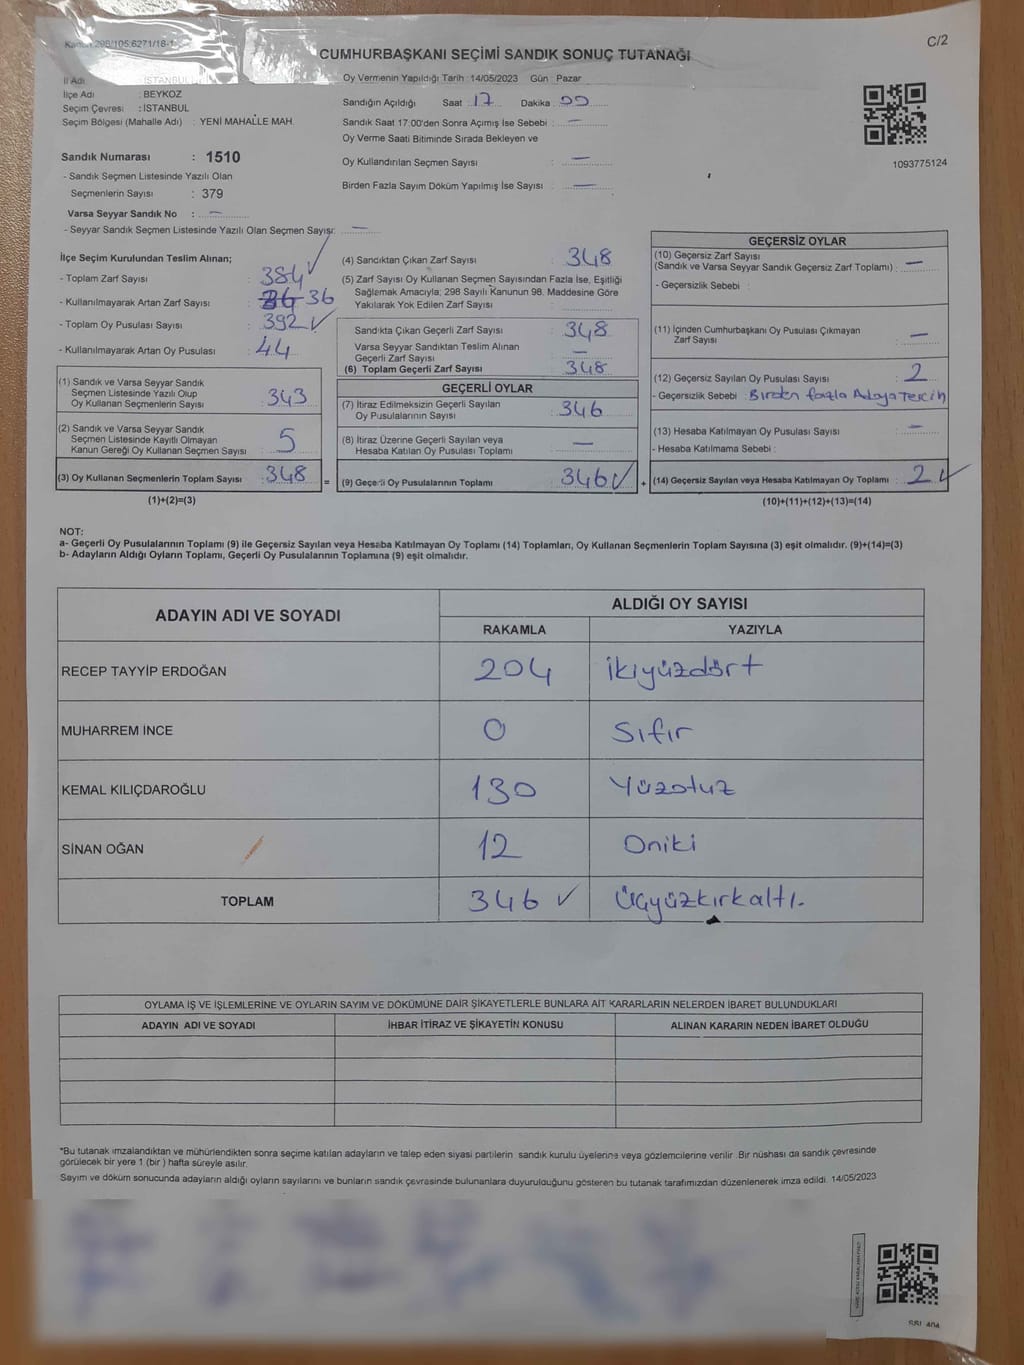 Kanun:298/105;6271/18-1
C/2
CUMHURBAŞKANI SEÇİMİ SANDIK SONUÇ TUTANAĞI
İl Adı : İSTANBUL
İlçe Adı : BEYKOZ
Seçim Çevresi : İSTANBUL
Seçim Bölgesi (Mahalle Adı) : YENİ MAHALLE MAH.
Sandık Numarası : 1510
- Sandık Seçmen Listesinde Yazılı Olan
Seçmenlerin Sayısı : 379
Varsa Seyyar Sandık No : —
- Seyyar Sandık Seçmen Listesinde Yazılı Olan Seçmen Sayısı: —
Oy Vermenin Yapıldığı Tarih : 14/05/2023 Gün : Pazar
Sandığın Açıldığı Saat : 17 Dakika : 00
Sandık Saat 17:00'den Sonra Açımış İse Sebebi : —
Oy Verme Saati Bitiminde Sırada Bekleyen ve
Oy Kullandırılan Seçmen Sayısı : —
Birden Fazla Sayım Döküm Yapılmış İse Sayısı : —
1093775124
İlçe Seçim Kurulundan Teslim Alınan;
- Toplam Zarf Sayısı : 384 ✓
- Kullanılmayarak Artan Zarf Sayısı : 36
- Toplam Oy Pusulası Sayısı : 392 ✓
- Kullanılmayarak Artan Oy Pusulası : 44
(1) Sandık ve Varsa Seyyar Sandık
Seçmen Listesinde Yazılı Olup
Oy Kullanan Seçmenlerin Sayısı : 343
(2) Sandık ve Varsa Seyyar Sandık
Seçmen Listesinde Kayıtlı Olmayan
Kanun Gereği Oy Kullanan Seçmen Sayısı : 5
(3) Oy Kullanan Seçmenlerin Toplam Sayısı : 348
(1)+(2)=(3)
(4) Sandıktan Çıkan Zarf Sayısı : 348
(5) Zarf Sayısı Oy Kullanan Seçmen Sayısından Fazla İse, Eşitliği
Sağlamak Amacıyla; 298 Sayılı Kanunun 98. Maddesine Göre
Yakılarak Yok Edilen Zarf Sayısı :
Sandıkta Çıkan Geçerli Zarf Sayısı : 348
Varsa Seyyar Sandıktan Teslim Alınan
Geçerli Zarf Sayısı : —
(6) Toplam Geçerli Zarf Sayısı : 348
GEÇERLİ OYLAR
(7) İtiraz Edilmeksizin Geçerli Sayılan
Oy Pusulalarının Sayısı : 346
(8) İtiraz Üzerine Geçerli Sayılan veya
Hesaba Katılan Oy Pusulası Toplamı : —
= (9) Geçerli Oy Pusulalarının Toplamı : 346 ✓
GEÇERSİZ OYLAR
(10) Geçersiz Zarf Sayısı
(Sandık ve Varsa Seyyar Sandık Geçersiz Zarf Toplamı) : —
- Geçersizlik Sebebi :
(11) İçinden Cumhurbaşkanı Oy Pusulası Çıkmayan
Zarf Sayısı : —
(12) Geçersiz Sayılan Oy Pusulası Sayısı : 2
- Geçersizlik Sebebi : Birden fazla Adaya Tercih
(13) Hesaba Katılmayan Oy Pusulası Sayısı : —
- Hesaba Katılmama Sebebi :
+ (14) Geçersiz Sayılan veya Hesaba Katılmayan Oy Toplamı : 2 ✓
(10)+(11)+(12)+(13)=(14)
NOT:
a- Geçerli Oy Pusulalarının Toplamı (9) ile Geçersiz Sayılan veya Hesaba Katılmayan Oy Toplamı (14) Toplamları, Oy Kullanan Seçmenlerin Toplam Sayısına (3) eşit olmalıdır. (9)+(14)=(3)
b- Adayların Aldığı Oyların Toplamı, Geçerli Oy Pusulalarının Toplamına (9) eşit olmalıdır.
ADAYIN ADI VE SOYADI ALDIĞI OY SAYISI
RAKAMLA YAZIYLA
RECEP TAYYİP ERDOĞAN 204 İkiyüzdört
MUHARREM İNCE 0 Sıfır
KEMAL KILIÇDAROĞLU 130 Yüzotuz
SİNAN OĞAN 12 Oniki
TOPLAM 346 ✓ Üçyüzkırkaltı.
OYLAMA İŞ VE İŞLEMLERİNE VE OYLARIN SAYIM VE DÖKÜMÜNE DAİR ŞİKAYETLERLE BUNLARA AİT KARARLARIN NELERDEN İBARET BULUNDUKLARI
ADAYIN ADI VE SOYADI İHBAR İTİRAZ VE ŞİKAYETİN KONUSU ALINAN KARARIN NEDEN İBARET OLDUĞU
*Bu tutanak imzalandıktan ve mühürlendikten sonra seçime katılan adayların ve talep eden siyasi partilerin sandık kurulu üyelerine veya gözlemcilerine verilir. Bir nüshası da sandık çevresinde
görülecek bir yere 1 (bir) hafta süreyle asılır.
Sayım ve döküm sonucunda adayların aldığı oyların sayılarını ve bunların sandık çevresinde bulunanlara duyurulduğunu gösteren bu tutanak tarafımızdan düzenlenerek imza edildi. 14/05/2023